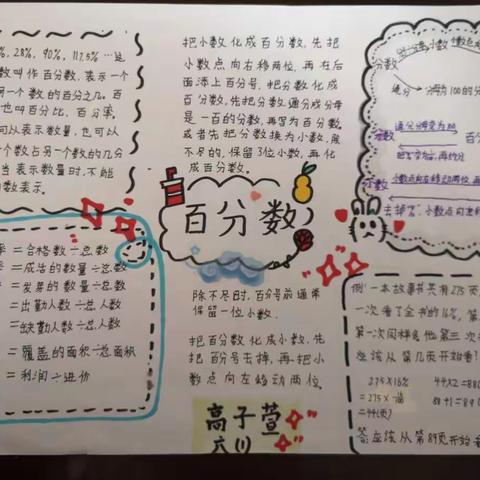 %, 28%, 90%, 117.5% …是
数叫作百分数,表示一个
另一个数的百分之几。百
也叫百分比、百分率。
可以表示数量,也可以
个数占另一个数的几分
当表示数量时,不能
数表示。
率=合格数÷总数
=成活的数量÷总数
=发芽的数量÷总数
=出勤人数÷总人数
=缺勤人数÷总人数
=覆盖的面积÷总面积
=利润÷进价
把小数化成百分数,先把
小数点向右移两位,再在后
面添上百分号,把分数化成
百分数,先把分数通分成分母
是一百的分数,再写为百分数
或者先把分数换为小数,除
不尽的,保留3位小数,再化
成百分数。
百分数
除不尽时,百分号前通常
保留一位小数.
把百分数化成小数,先
把百分号去掉,再把小
数点向左移动两位。
高子萱
六(1)
小数
分数
通分
分母为100的分
分数
通分分母变为100
百分
分数
小数点向左移动两位,再
去掉了%,小数点向左
例:一本故事书共有275页
一次看了全书的16%,第
第一次同样多,他第三次
应该从第几页开始看?
275×16%
=275×
=44(页)
44×2=88(
88+1=89(
答:应该从第89页开始看